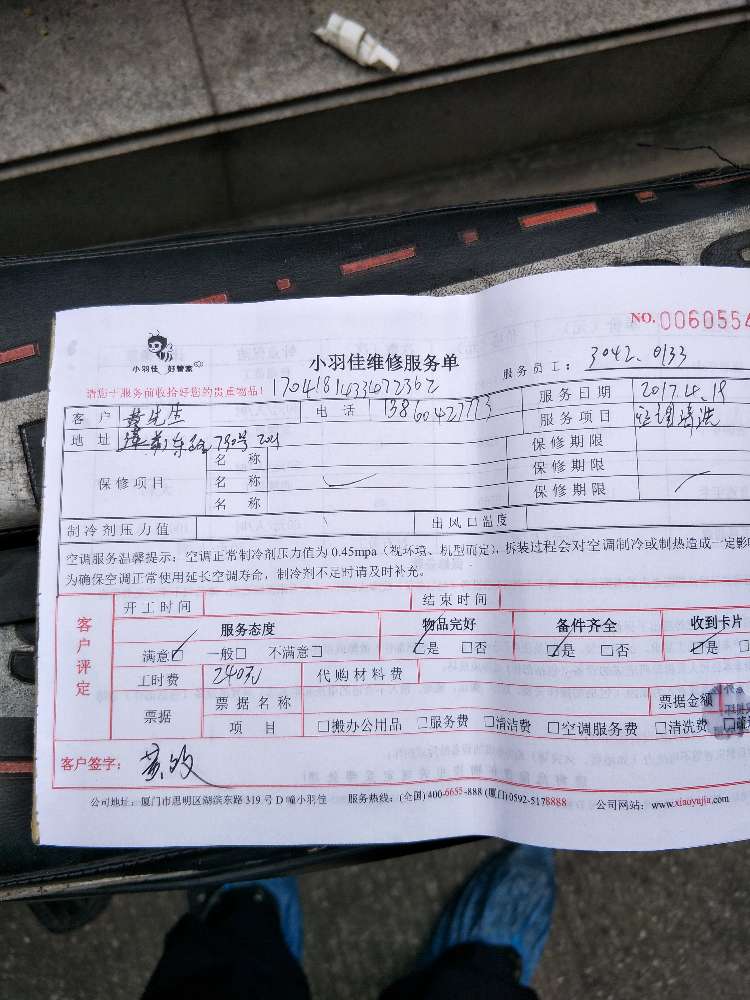 NO. 0060554
小羽佳 好管家
小羽佳维修服务单
服务员工： 3042.0133
请您于服务前收拾好您的贵重物品！
1704181433472362
客 户 黄先生 电 话 服务日期 2017.4.19
地 址 790号 服务项目 空调清洗
保修项目 名 称 保修期限
名 称 保修期限
名 称 保修期限
制冷剂压力值 出风口温度
空调服务温馨提示：空调正常制冷剂压力值为 0.45mpa（视环境、机型而定），拆装过程会对空调制冷或制热造成一定影
为确保空调正常使用延长空调寿命，制冷剂不足时请及时补充。
客户评定
开工时间 结束时间
服务态度 物品完好 备件齐全 收到卡片
满意□ 一般□ 不满意□ □是 □否 □是 □否 □是 □
工时费 240元 代购材料费
票据 票据名称 票据金额
项 目 □搬办公用品 □服务费 □清洁费 □空调服务费 □清洗费
客户签字：
公司地址：厦门市思明区湖滨东路 319 号 D 幢小羽佳 服务热线：(全国) 400-6655-888 (厦门) 0592-5178888 公司网站：www.xiaoyujia.com